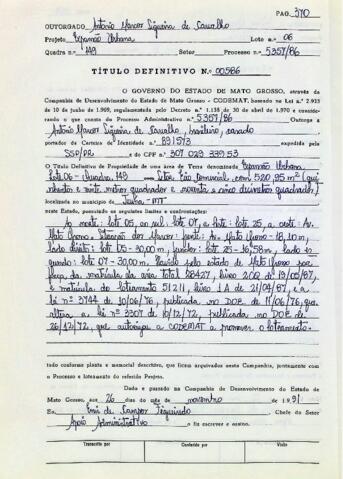 PAG. 370
OUTORGADO Antônio Marcos Siqueira de Carvalho
Projeto Expansão Urbana Lote n.º 06
Quadra n.º 148 Setor Processo n.º 5357/86
TÍTULO DEFINITIVO N.º 00586
O GOVERNO DO ESTADO DE MATO GROSSO, através da
Companhia de Desenvolvimento do Estado de Mato Grosso - CODEMAT, baseado na Lei n.º 2.925
de 10 de junho de 1.969, regulamentada pelo decreto n.º 1.138 de 30 de abril de 1.970 e considerando
o que consta do Processo Administrativo n.º 5357/86 Outorga a
Antônio Marcos Siqueira de Carvalho, brasileiro, casado
portador da Carteira de Identidade n.º 891573 expedida pela
SSP/PR e do CPF n.º 307 029 339 53
o Título Definitivo de Propriedade de uma área de Terra denominada Expansão Urbana
Lote 06 - Quadra 148 com 520,95 m² (qui-
nhentos e vinte metros quadrados e noventa e cinco decímetros quadrados)
localizado no município de Juína - MT
neste Estado, possuindo os seguintes limites e confrontações:
Ao norte: lote 05, ao sul: lote 07, a leste: lote 25, a oeste: Av.
Mato Grosso. frente: Av. Mato Grosso - 18,10 m,
lado direito: lote 05 - 30,00 m, fundos: lote 25 - 16,58 m, lado es-
querdo: lote 07 - 30,00 m. pelo estado de Mato Grosso
da matrícula da área total 28427, livro 2CQ de 13/05/87,
e matrícula do loteamento 51211, livro 1A de 21/04/87, e a
lei nº 3744 de 10/06/76, publicada no DOE de 11/06/76, que
altera a lei nº 3307 de 10/12/72, publicada no DOE de
26/12/72, que autoriza a CODEMAT a promover o loteamento.
tudo conforme planta e memorial descritivo, que ficam arquivados nesta Companhia, juntamente com
o Processo e loteamento do referido Projeto.
Dado e passado na Companhia de Desenvolvimento do Estado de
Mato Grosso, aos 26 dias do mês de novembro de 1991
Eu, Chefe do Setor
Apoio Administrativo o fiz escrever e assino.
Transcrito por Conferido por Visto